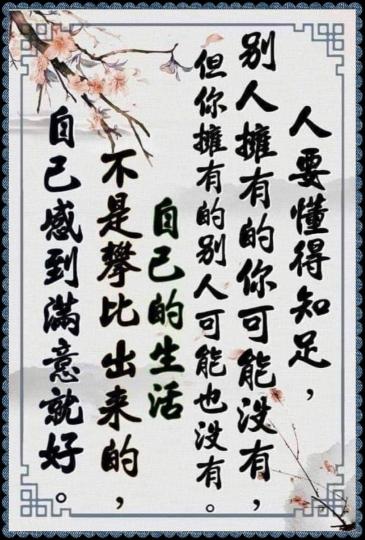 人要懂得知足，
别人擁有的你可能没有，
但你擁有的别人可能也没有。
自己的生活
不是攀比出来的，
自己感到滿意就好。